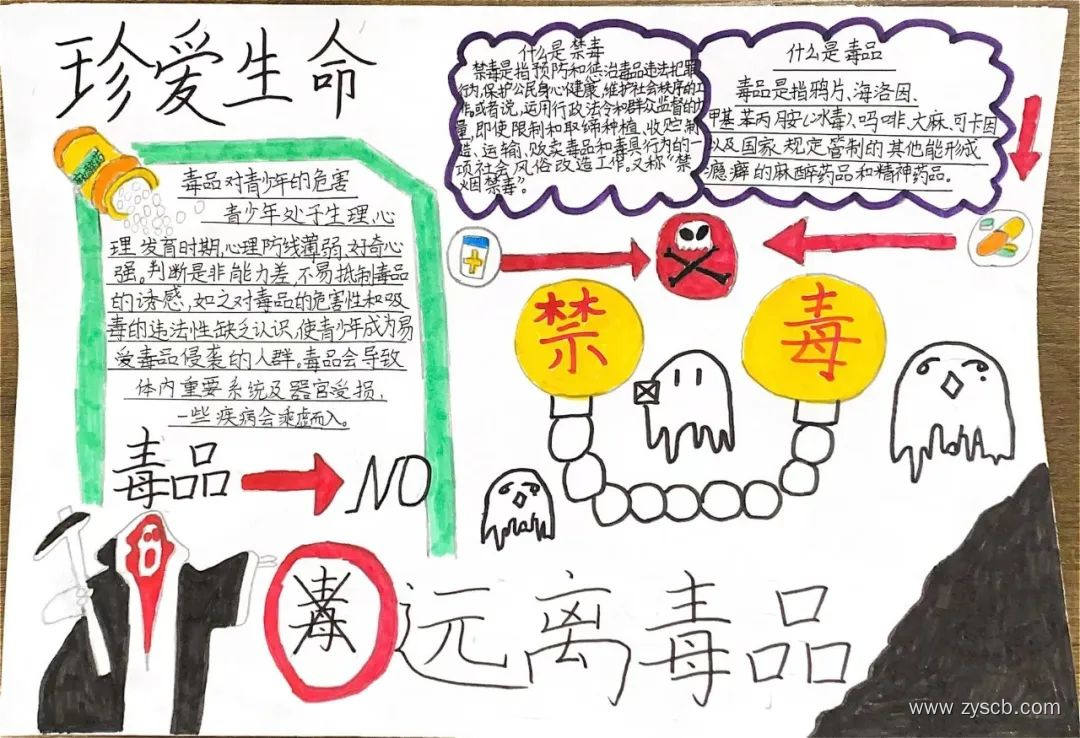 珍爱生命
毒品对青少年的危害
青少年处于生理、心
理发育时期,心理防线薄弱,对奇心
强。判断是非能力差,不易抵制毒品
的诱惑,如之对毒品的危害性和吸
毒的违法性缺乏认识,使青少年成为易
爱毒品侵袭的人群。毒品会导致
体内重要系统及器官受损,
一些疾病会乘虚而入。
毒品 NO
什么是禁毒
禁毒是指预防和惩治毒品违法犯罪
行为,保护公民身心健康,维护社会秩序的工
作。或者说,运用行政法令和群众监督的力
量,即使限制和取缔种植、收贮、制
造、运输、贩卖毒品和毒具行为的一
项社会风俗改造工作。又称“禁
烟禁毒”。
什么是毒品
毒品是指鸦片、海洛因、
甲基苯丙胺(冰毒)、吗啡、大麻、可卡因
以及国家规定管制的其他能形成
瘾癖的麻醉药品和精神药品。
禁 毒
毒
远离毒品
www.zyscb.com